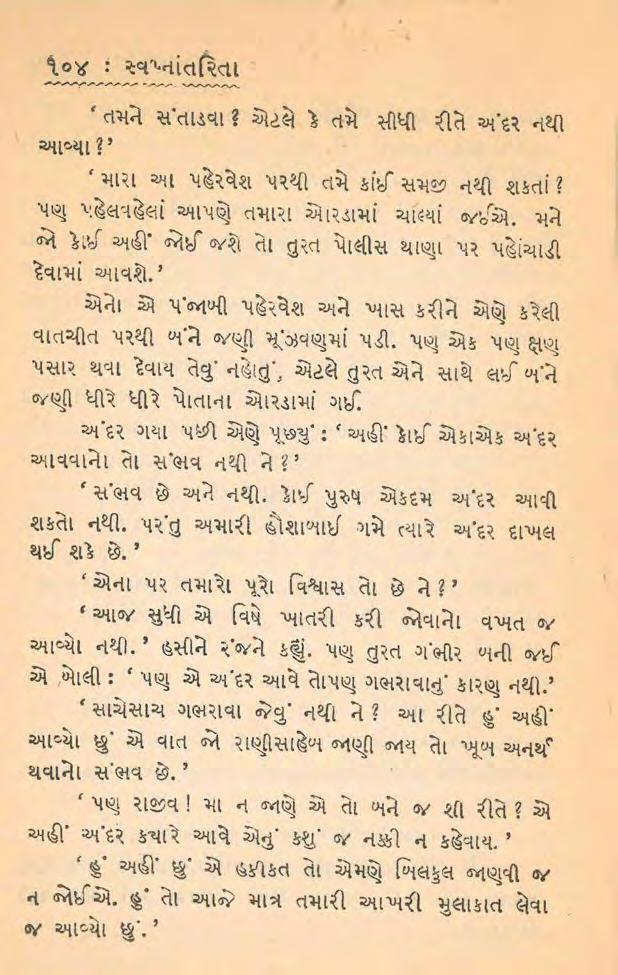 ૧૦૪ : સ્વપ્નાંતરિતા
‘તમને સંતાડવા ? એટલે કે તમે સીધી રીતે અંદર નથી
આવ્યા ?’
‘મારા આ પહેરવેશ પરથી તમે કાંઈ સમજી નથી શકતાં ?
પણ પહેલવહેલાં આપણે તમારા ઓરડામાં ચાલ્યાં જઈએ. મને
જો કોઈ અહીં જોઈ જશે તો તુરત પોલીસ થાણા પર પહોંચાડી
દેવામાં આવશે.’
એનો એ પંજાબી પહેરવેશ અને ખાસ કરીને એણે કરેલી
વાતચીત પરથી બંને જણી મૂંઝવણમાં પડી. પણ એક પણ ક્ષણ
પસાર થવા દેવાય તેવું નહોતું, એટલે તુરત એને સાથે લઈ બંને
જણી ધીરે ધીરે પોતાના ઓરડામાં ગઈ.
અંદર ગયા પછી એણે પૂછ્યું : ‘અહીં કોઈ એકાએક અંદર
આવવાનો તો સંભવ નથી ને ?’
‘સંભવ છે અને નથી. કોઈ પુરુષ એકદમ અંદર આવી
શકતો નથી. પરંતુ અમારી હૌશાબાઈ ગમે ત્યારે અંદર દાખલ
થઈ શકે છે.’
‘એના પર તમારો પૂરો વિશ્વાસ તો છે ને ?’
‘આજ સુધી એ વિષે ખાતરી કરી જોવાનો વખત જ
આવ્યો નથી.’ હસીને રંજને કહ્યું. પણ તુરત ગંભીર બની જઈ
એ બોલી : ‘પણ એ અંદર આવે તોપણ ગભરાવાનું કારણ નથી.’
‘સાચેસાચ ગભરાવા જેવું નથી ને ? આ રીતે હું અહીં
આવ્યો છું એ વાત જો રાણીસાહેબ જાણી જાય તો ખૂબ અનર્થ
થવાનો સંભવ છે.’
‘પણ રાજીવ ! મા ન જાણે એ તો બને જ શી રીતે ? એ
અહીં અંદર ક્યારે આવે એનું કશું જ નક્કી ન કહેવાય.’
‘હું અહીં છું એ હકીકત તો એમણે બિલકુલ જાણવી જ
ન જોઈએ. હું તો આજે માત્ર તમારી આખરી મુલાકાત લેવા
જ આવ્યો છું.’